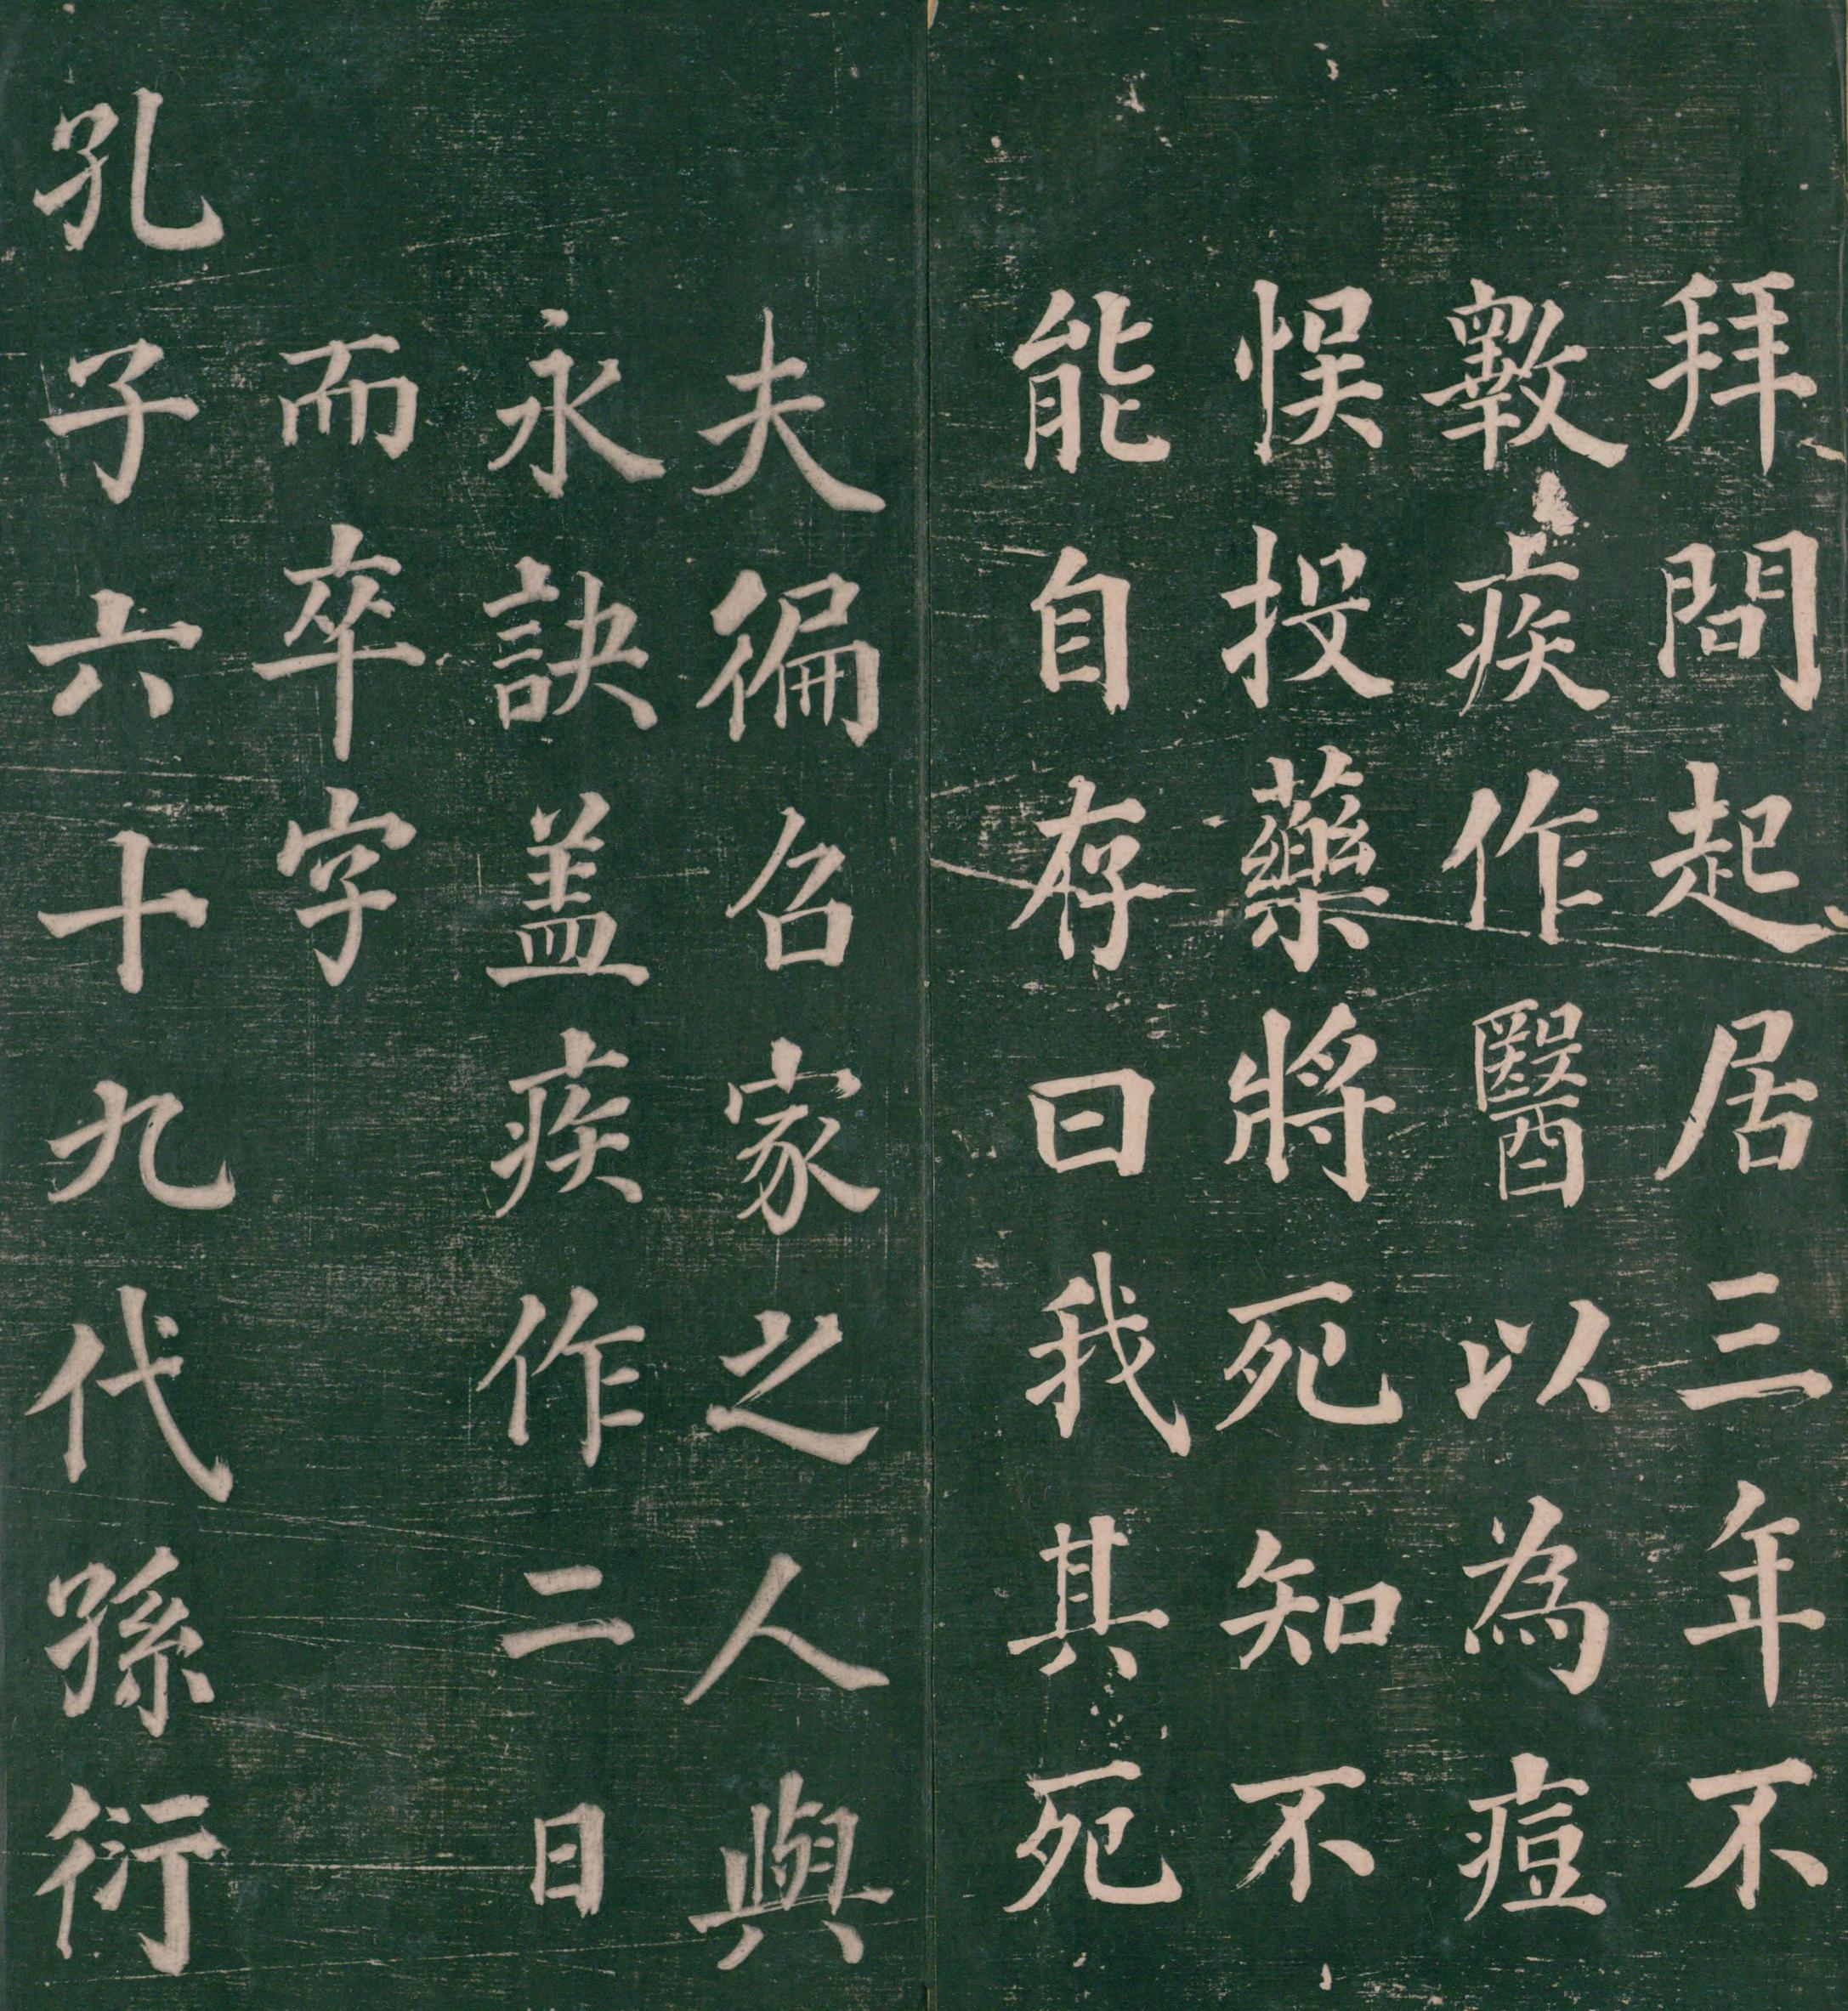 拜問起居三年不
斁疾作醫以為痘
悮投藥將死知不
能自存曰我其死
夫徧召家之人與
永訣盖疾作二日
而卒字
孔子六十九代孫衍